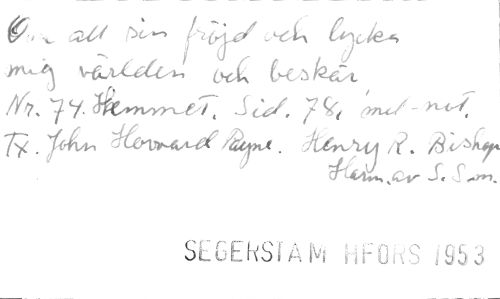 Om all sin fröjd och lycka
mig världen och beskär
Nr. 74. Hemmet. Sid. 78, med not.
Tx. John Howard Payne. Henry R. Bishop
Harm. av S. S-m.
SEGERSTAM HFORS 1953